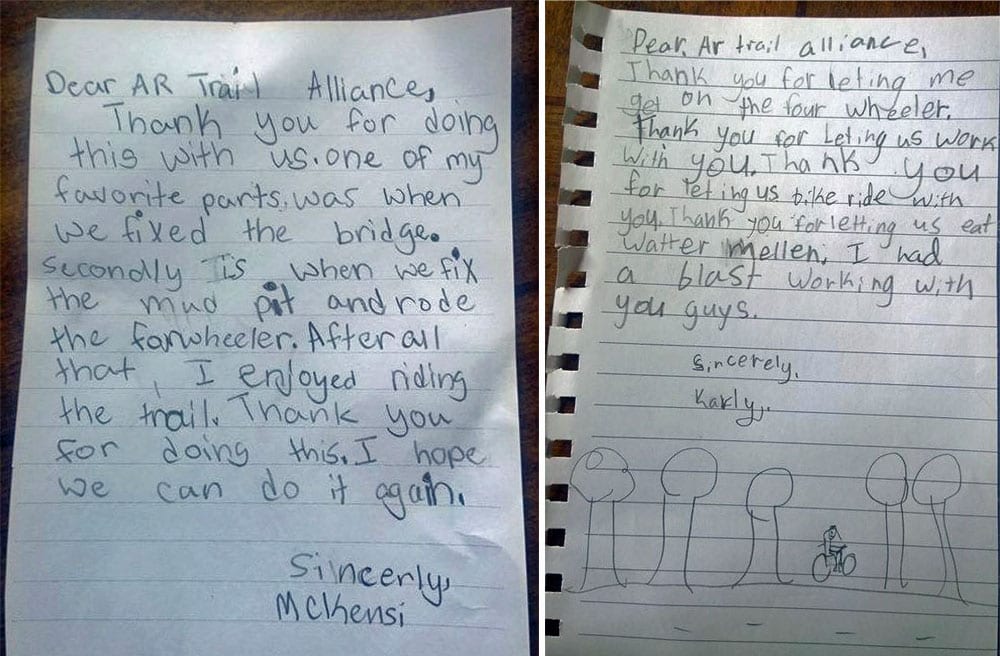 Dear AR Trail Alliance,
Thank you for doing
this with us. one of my
favorite parts. was when
we fixed the bridge.
secondly is when we fix
the mud pit and rode
the forwheeler. After all
that, I enjoyed riding
the trail. Thank you
for doing this. I hope
we can do it again.
Sincerly,
McKensi
Dear Ar trail alliance,
Thank you for leting me
get on the four wheeler.
Thank you for Leting us work
with you. Thank you
for leting us bike ride with
you. Thank you for letting us eat
watter mellen. I had
a blast working with
you guys.
Sincerely,
Karly.